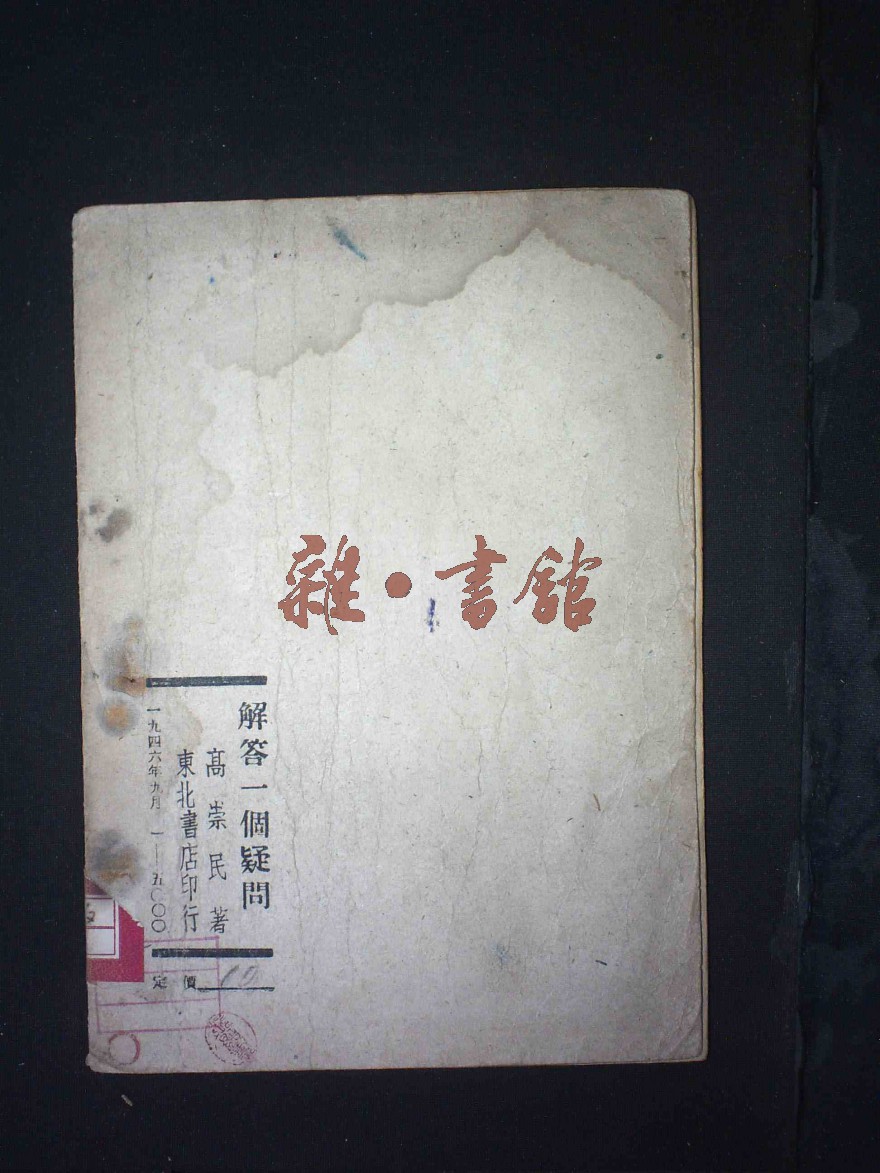 雜·書館
解答一個疑問
高崇民著
東北書店印行
一九四六年九月 一—五〇〇〇
定價